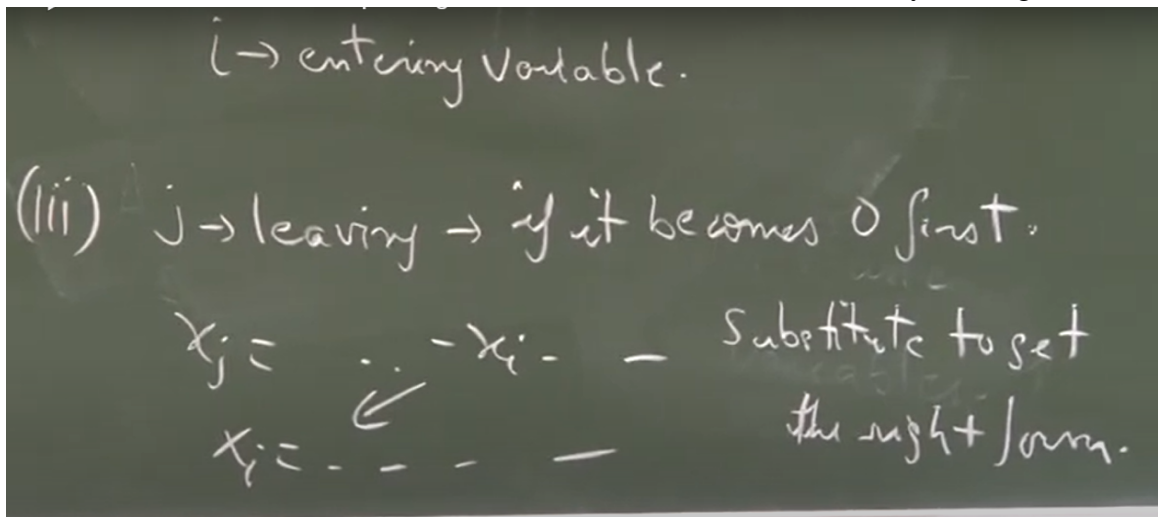 i → entering variable.
(iii) j → leaving → if it becomes 0 first.
xj = .. - xi - — Substitute to get
xi = - - - — the right form.